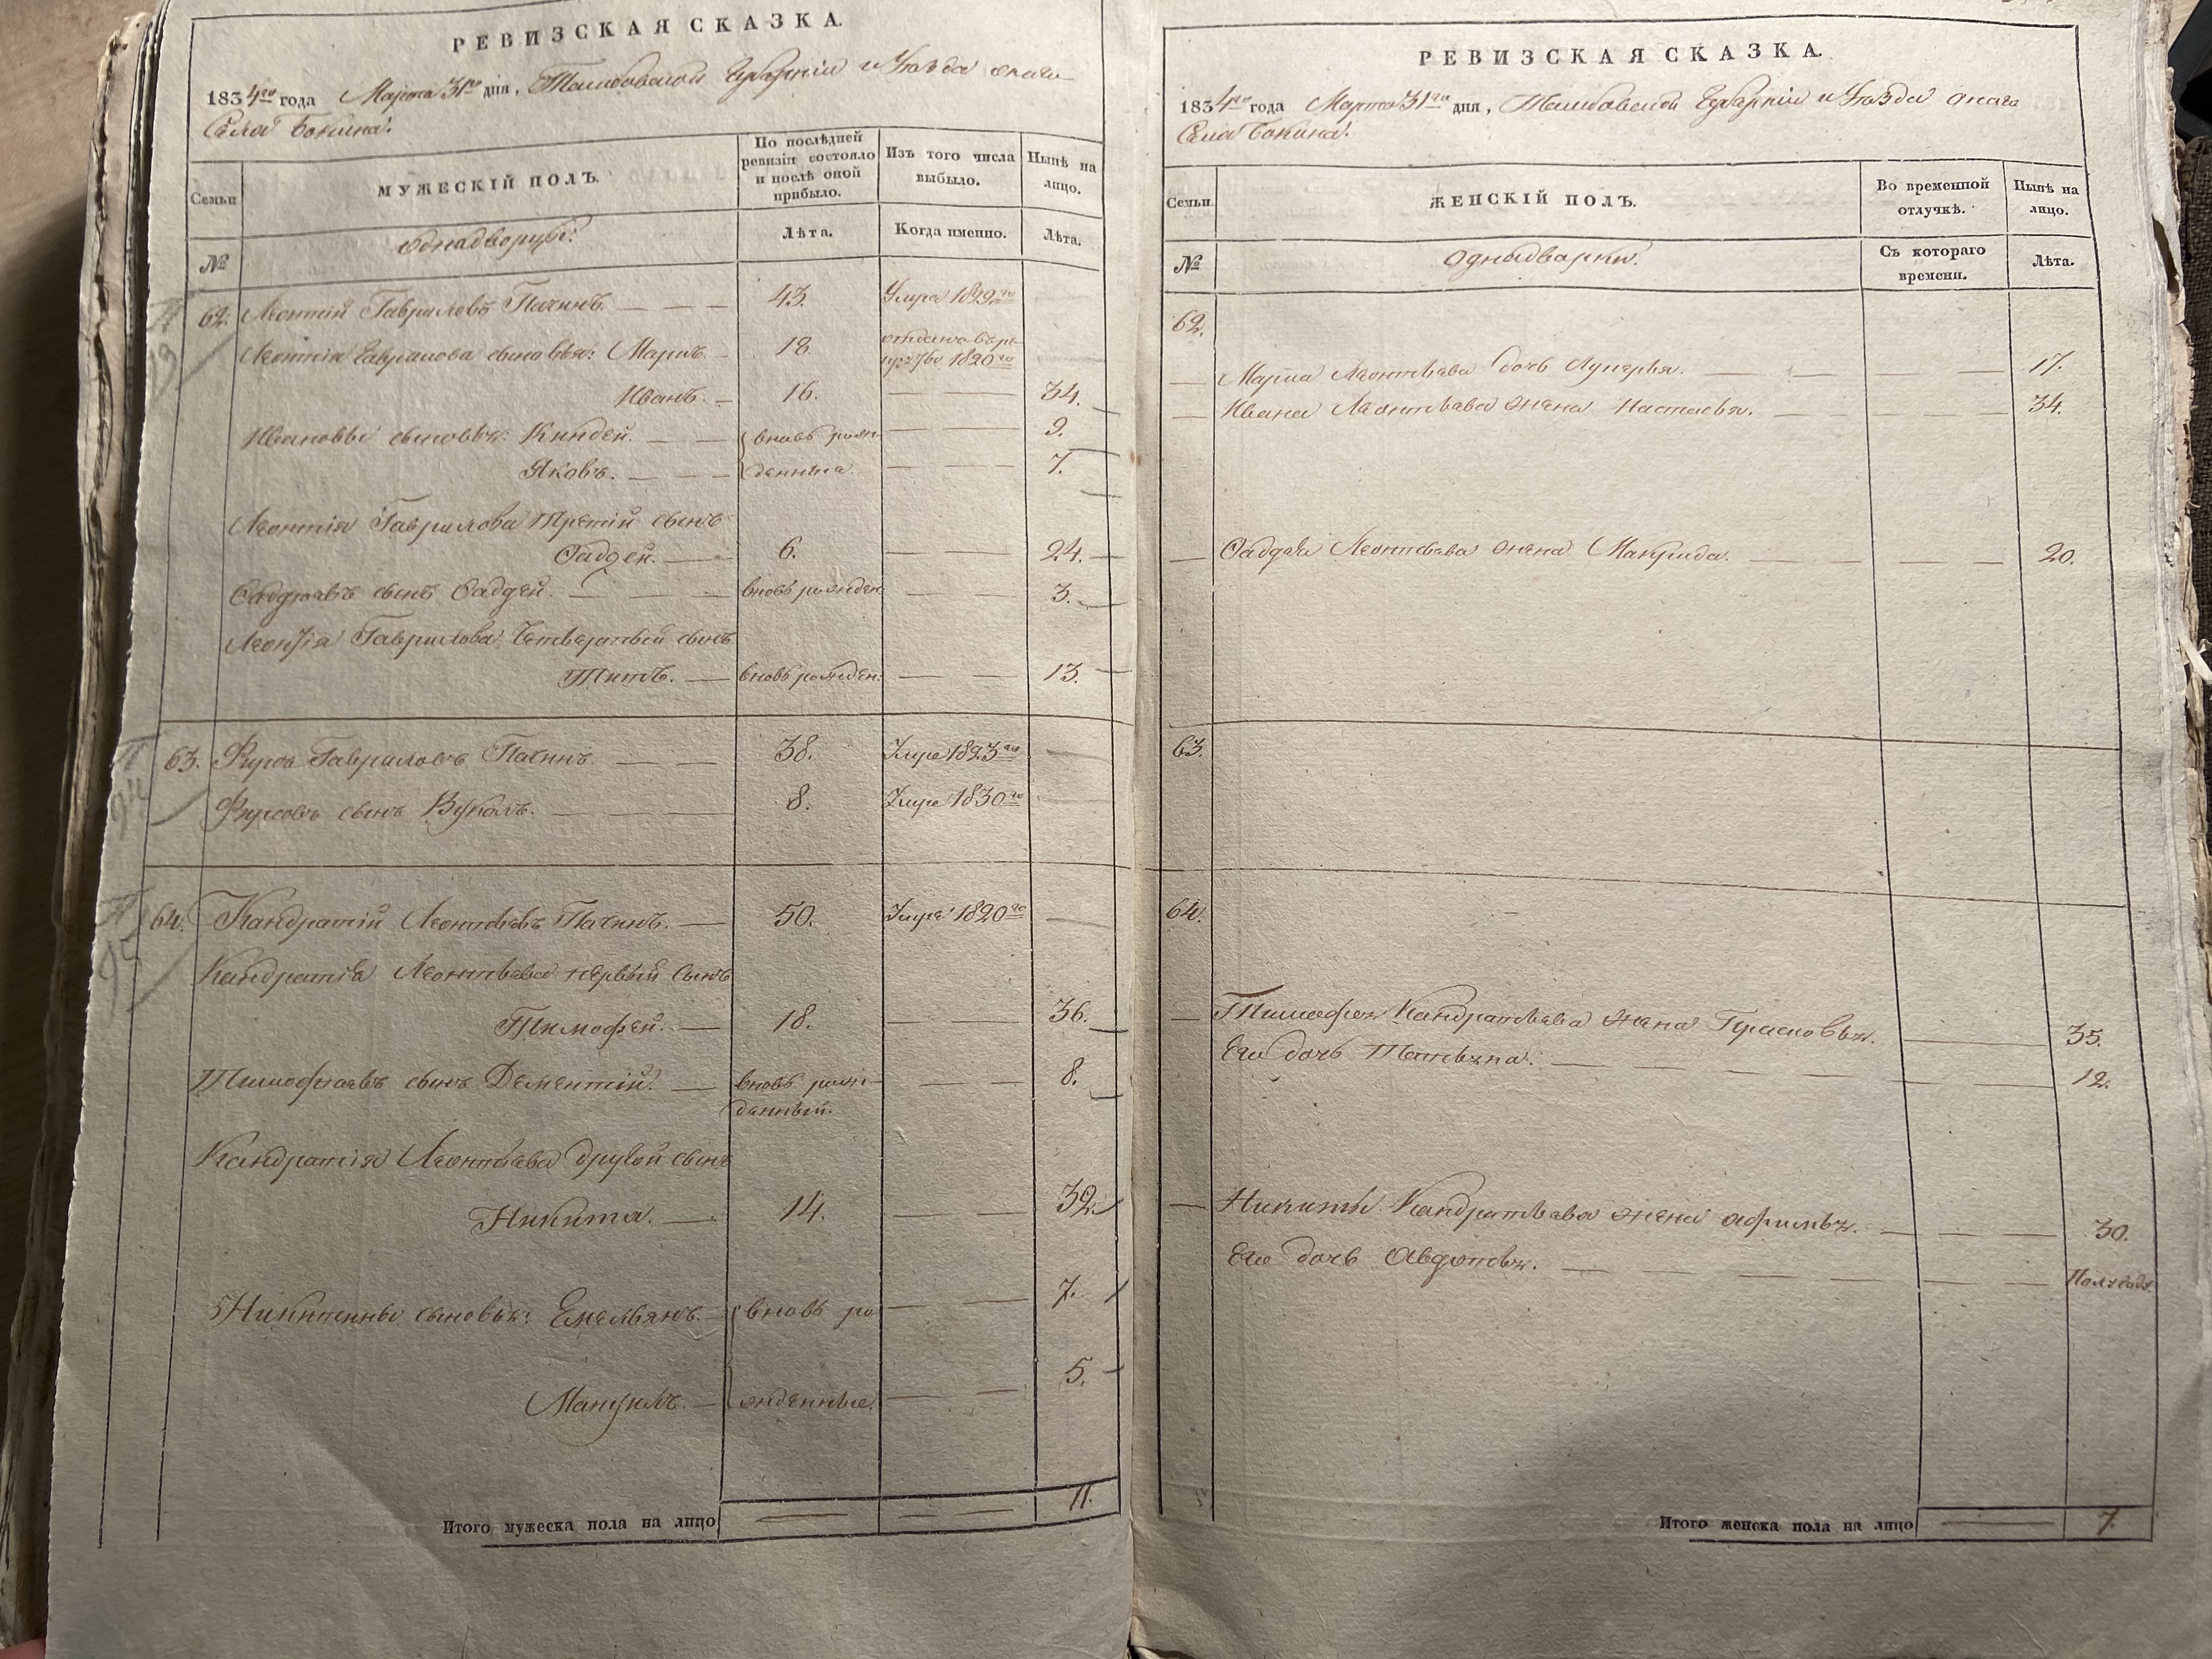 РЕВИЗСКАЯ СКАЗКА.
1834го года Марта 31го дня, Тамбовской Губернии и Уезда онаго
Села Бокина.
Семьи
МУЖЕСКІЙ ПОЛЪ.
По послѣдней ревизіи состояло и послѣ оной прибыло.
Изъ того числа выбыло.
Нынѣ на лицо.
№
однадворцы.
Лѣта.
Когда именно.
Лѣта.
62. Леонтій Гавриловъ Пачинъ. 43. Умре 1829го
Леонтія Гаврилова сыновья: Маркъ. 18. 1820го
Иванъ. 16. 34.
Ивановы сыновья: Киндей. вновь рож- 9.
Яковъ. денныя. 7.
Леонтія Гаврилова третій сынъ
Фадей. 6. 24.
сынъ Фадей. вновь рожден 3.
Леонтія Гаврилова Четвертый сынъ
Титъ. вновь рожден: 13.
63. Фирсъ Гавриловъ Пачинъ. 38. Умре 1823го
Фирсовъ сынъ Вуколъ. 8. Умре 1830го
64. Кандратій Леонтьевъ Пачинъ. 50. Умре 1820го
Кандратія Леонтьева первый сынъ
Тимофей. 18. 36.
Тимофеевъ сынъ Дементій. вновь рож- 8.
денный.
Кандратія Леонтьева другой сынъ
Никита. 14. 32.
Никитины сыновья: Емельянъ. вновь ро 7.
Мануилъ. жденные. 5.
Итого мужеска пола на лицо 11.
РЕВИЗСКАЯ СКАЗКА.
1834го года Марта 31го дня, Тамбовской Губернии и Уезда онаго
Села Бокина.
Семьи.
ЖЕНСКІЙ ПОЛЪ.
Во временной отлучкѣ.
Нынѣ на лицо.
№
однадварки.
Съ котораго времени.
Лѣта.
62.
Марка Леонтьева дочь Лукерья. 17.
Ивана Леонтьева жена Настасья. 34.
Фаддея Леонтьева жена Макрида. 20.
63.
64.
Тимофея Кандратьева жена Прасковья. 35.
Его дочь Татьяна. 12.
Никиты Кандратьева жена Афимья. 30.
Его дочь Авдотья. Полгода
Итого женска пола на лицо 7.